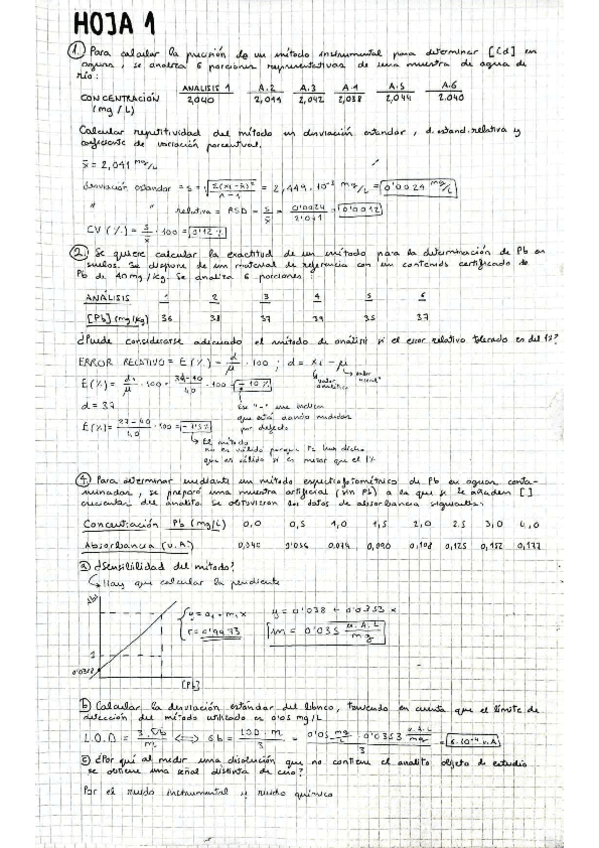 HOJA 1
① Para calcular la precisión de un método instrumental para determinar [Cd] en
aguas, se analiza 6 porciones representativas de una muestra de agua de
río:
ANALISIS 1 A.2 A.3 A.4 A.5 A.6
CONCENTRACIÓN 2,040 2,044 2,042 2,038 2,044 2.040
(mg/L)
Calcular repetitividad del método en desviación estándar, d.estand.relativa y
coeficiente de variación porcentual.
x̄ = 2,041 mg/L
desviación estándar = s = √Σ(xi-x̄)²/n-1 = 2,449.10⁻³ mg/L = 0'0024 mg/L
" " relativa = RSD = s/x̄ = 0'0024/2'041 = 0'0012
CV (%) = s/x̄ · 100 = 0'12 %
② Se quiere calcular la exactitud de un método para la determinación de Pb en
suelos. Se dispone de un material de referencia con un contenido certificado de
Pb de 40mg/kg. Se analiza 6 porciones:
ANÁLISIS 1 2 3 4 5 6
[Pb](mg/kg) 36 38 37 39 35 37
¿Puede considerarse adecuado el método de análisis si el error relativo tolerado es del 1%?
ERROR RELATIVO = E(%) = d/μ · 100 ; d = xi - μ
valor analítico
E(%) = di/μ · 100 = 36-40/40 · 100 = -10%
d = 37
Ese "-" me indica
que está dando medidas
por defecto
E(%) = 37-40/40 · 100 = -7'5%
↳ El método
no es válido porque te han dicho
que es válido si es menor que el 1%
④ Para determinar mediante un método espectrofotométrico de Pb en aguas conta-
minadas, se preparó una muestra artificial (sin Pb) a la que se le añaden [ ]
crecientes del analito. Se obtuvieron los datos de absorbancia siguientes:
Concentración Pb (mg/L) 0,0 0,5 1,0 1,5 2,0 2.5 3,0 4,0
Absorbancia (u.A) 0,040 0'056 0.074 0,090 0,108 0,125 0,152 0,177
a) ¿Sensibilidad del método?
↳ Hay que calcular la pendiente
Abs
y = a + m,x
r = 0'9973
y = 0'038 + 0'0353 x
m = 0'035 u.A.L/mg
0'038
[Pb]
b) Calcular la desviación estándar del blanco, teniendo en cuenta que el límite de
detección del método utilizado es 0'05 mg/L
L.O.D = 3.Sb/m ⟺ Sb = LOD.m/3 = 0'05 mg/L · 0'0353 u.A.L/mg / 3 = 6·10⁻⁴ u.A
c) ¿Por qué al medir una disolución que no contiene el analito objeto de estudio
se obtiene una señal distinta de cero?
Por el ruido instrumental y ruido químico